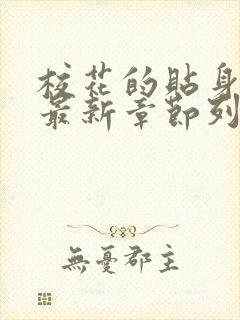 校花的貼身
最新章節列
無憂郡主